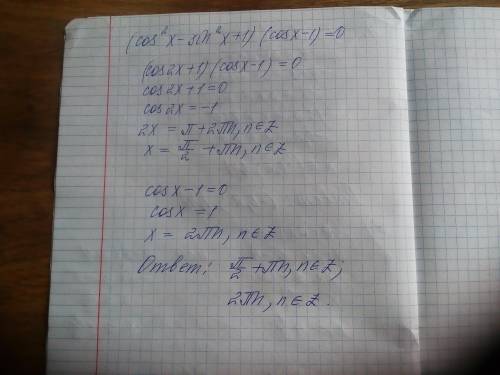 (cos²x - sin²x + 1) (cosx - 1) = 0
(cos2x + 1) (cosx - 1) = 0
cos2x + 1 = 0
cos2x = -1
2x = π + 2πn, n ∈ Z
x = π/2 + πn, n ∈ Z
cosx - 1 = 0
cosx = 1
x = 2πn, n ∈ Z
Ответ: π/2 + πn, n ∈ Z;
2πn, n ∈ Z.